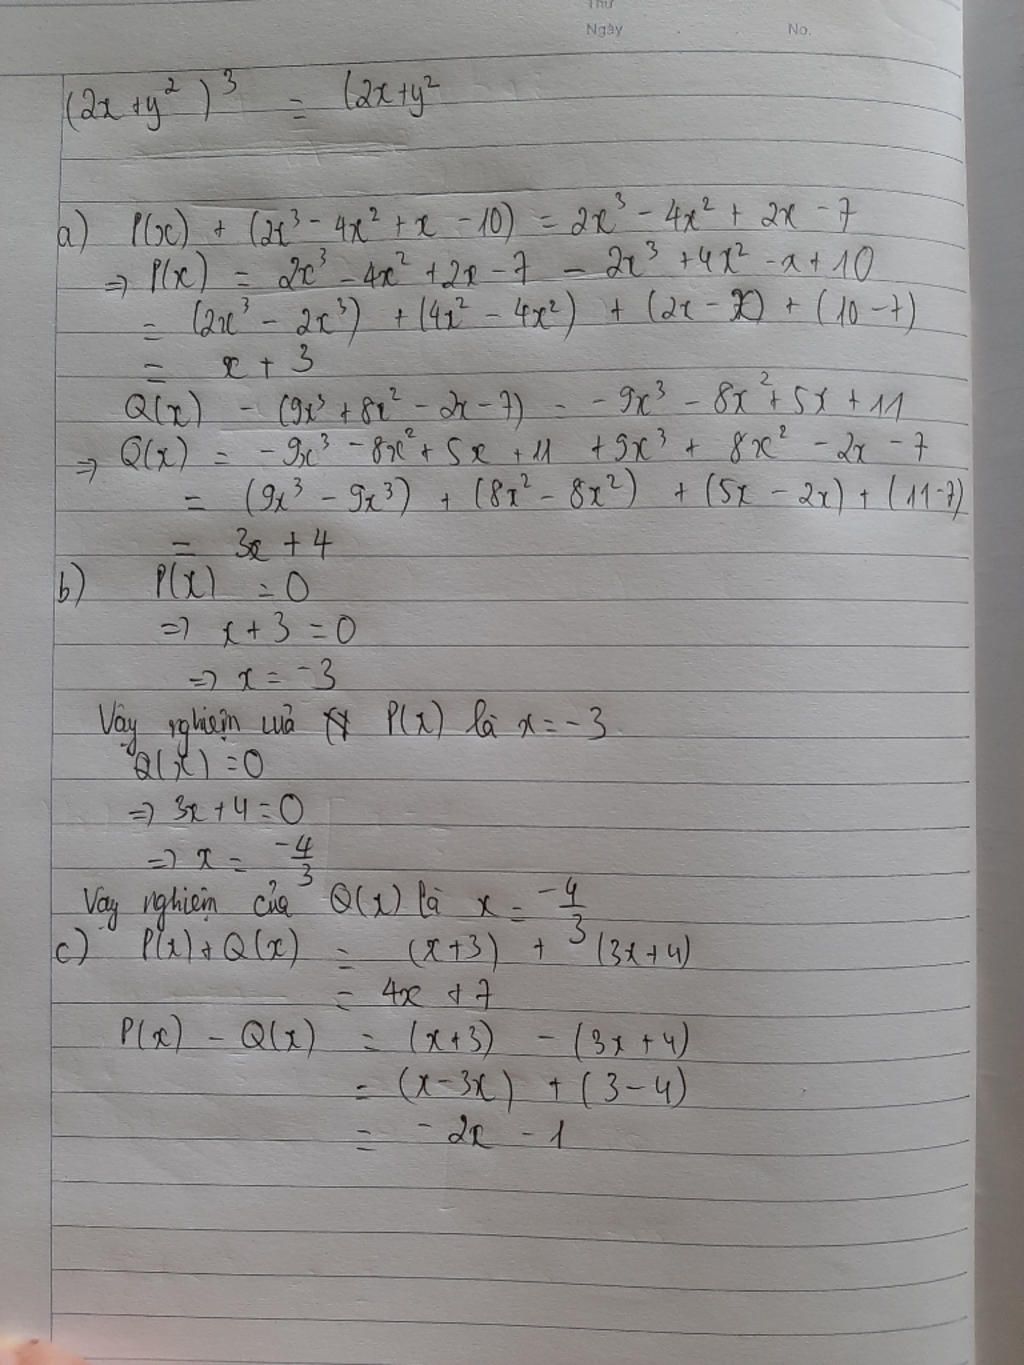 Thứ
Ngày No.
(2x+y²)³ = (2x+y²
a) P(x) + (2x³ - 4x² + x - 10) = 2x³ - 4x² + 2x - 7
=> P(x) = 2x³ - 4x² + 2x - 7 - 2x³ + 4x² - x + 10
= (2x³ - 2x³) + (4x² - 4x²) + (2x - x) + (10 - 7)
= x + 3
Q(x) - (9x³ + 8x² - 2x - 7) = -9x³ - 8x² + 5x + 11
=> Q(x) = -9x³ - 8x² + 5x + 11 + 9x³ + 8x² - 2x - 7
= (9x³ - 9x³) + (8x² - 8x²) + (5x - 2x) + (11-7)
= 3x + 4
b) P(x) = 0
=> x + 3 = 0
=> x = -3
Vậy nghiệm cuả P(x) là x = -3
Q(x) = 0
=> 3x + 4 = 0
=> x = -4/3
Vậy nghiệm của Q(x) là x = -4/3
c) P(x) + Q(x) = (x+3) + (3x+4)
= 4x + 7
P(x) - Q(x) = (x+3) - (3x+4)
= (x-3x) + (3-4)
= -2x - 1